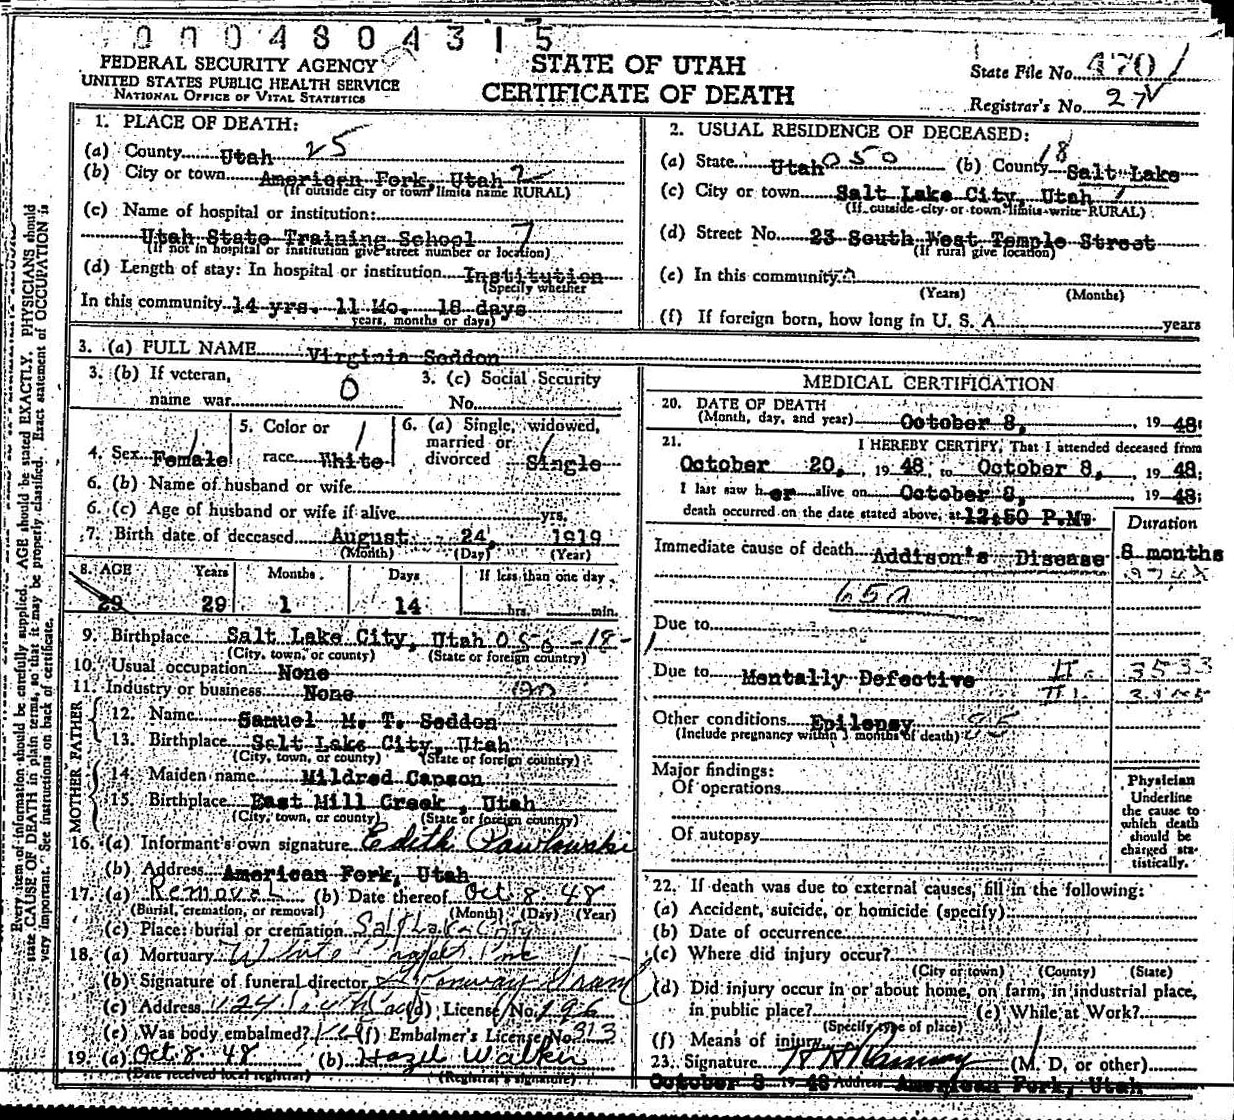 0004804315
FEDERAL SECURITY AGENCY
UNITED STATES PUBLIC HEALTH SERVICE
NATIONAL OFFICE OF VITAL STATISTICS
STATE OF UTAH
CERTIFICATE OF DEATH
State File No. 470
Registrar's No. 27
1. PLACE OF DEATH:
(a) County Utah 25
(b) City or town American Fork, Utah 2
(If outside city or town limits name RURAL)
(c) Name of hospital or institution:
Utah State Training School 7
(If not in hospital or institution give street number or location)
(d) Length of stay: In hospital or institution Institution
(Specify whether
In this community 14 yrs. 11 Mo. 18 days
years, months or days)
2. USUAL RESIDENCE OF DECEASED:
(a) State Utah 050 (b) County 18 Salt Lake
(c) City or town Salt Lake City, Utah 1
(If outside city or town limits write RURAL)
(d) Street No. 23 South West Temple Street
(If rural give location)
(e) In this community
(Years) (Months)
(f) If foreign born, how long in U. S. A. years
3. (a) FULL NAME Virginia Seddon
3. (b) If veteran,
name war 0
3. (c) Social Security
No.
4. Sex Female
5. Color or
race White
6. (a) Single, widowed,
married or
divorced Single
6. (b) Name of husband or wife
6. (c) Age of husband or wife if alive yrs.
7. Birth date of deceased August 24, 1919
(Month) (Day) (Year)
8. AGE Years Months Days If less than one day
29 29 1 14 hrs. min.
9. Birthplace Salt Lake City, Utah 050-18-1
(City, town, or county) (State or foreign country)
10. Usual occupation None
11. Industry or business None
FATHER
12. Name Samuel M. T. Seddon
13. Birthplace Salt Lake City, Utah
(City, town, or county) (State or foreign country)
MOTHER
14. Maiden name Mildred Capson
15. Birthplace East Mill Creek, Utah
(City, town, or county) (State or foreign country)
16. (a) Informant's own signature Edith Pawlowski
(b) Address American Fork, Utah
17. (a) Removal (b) Date thereof Oct 8. 48
(Burial, cremation, or removal) (Month) (Day) (Year)
(c) Place: burial or cremation Salt Lake City
18. (a) Mortuary
(b) Signature of funeral director
(c) Address (d) License No. 196
(e) Was body embalmed? Yes (f) Embalmer's License No. 313
19. (a) Oct 8. 48 (b) Hazel Walker
(Date received local registrar) (Registrar's signature)
MEDICAL CERTIFICATION
20. DATE OF DEATH
(Month, day, and year) October 8, 19 48
21. I HEREBY CERTIFY, That I attended deceased from
October 20, 19 48, to October 8, 19 48;
I last saw her alive on October 8, 19 48;
death occurred on the date stated above, at 12:50 P.M.
Duration
Immediate cause of death Addison's Disease 8 months
Due to
Due to Mentally Defective
Other conditions Epilepsy
(Include pregnancy within 3 months of death)
Major findings:
Of operations
Of autopsy
Physician
Underline
the cause to
which death
should be
charged sta-
tistically.
22. If death was due to external causes, fill in the following:
(a) Accident, suicide, or homicide (specify)
(b) Date of occurrence
(c) Where did injury occur?
(City or town) (County) (State)
(d) Did injury occur in or about home, on farm, in industrial place,
in public place? (e) While at Work?
(Specify type of place)
(f) Means of injury
23. Signature (M. D. or other)
October 8 19 48 Address American Fork, Utah
Every item of information should be carefully supplied. AGE should be stated EXACTLY. PHYSICIANS should
state CAUSE OF DEATH in plain terms, so that it may be properly classified. Exact statement of OCCUPATION is
very important. See instructions on back of certificate.